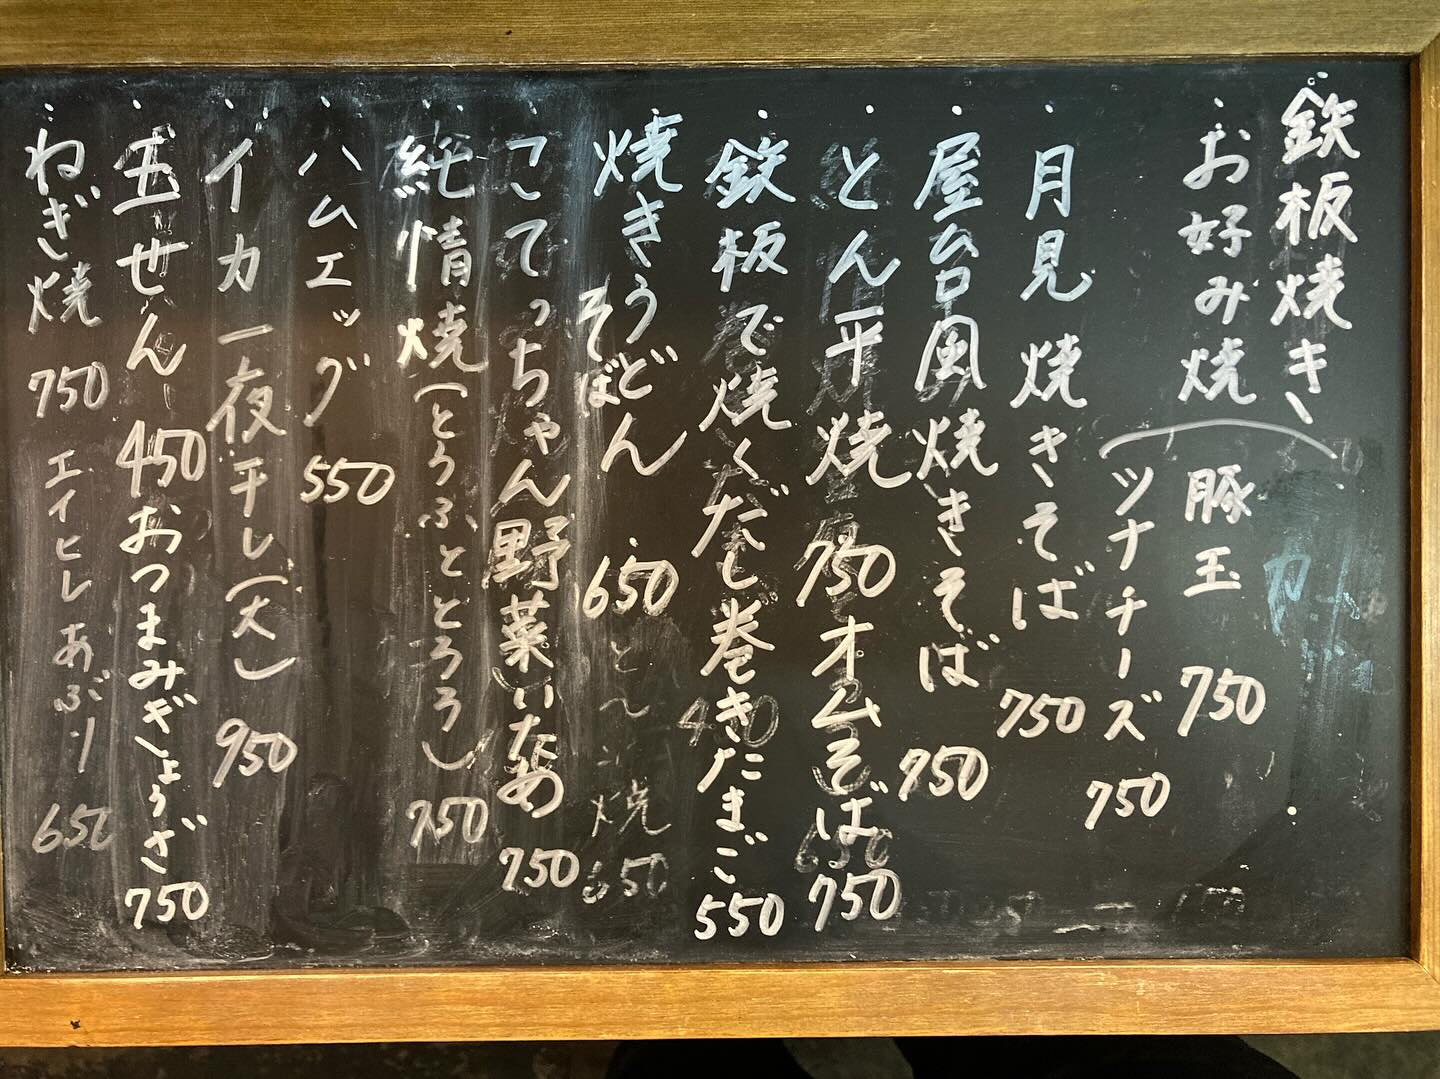 鉄板焼き
・お好み焼 豚玉 750
ツナチーズ 750
・月見焼きそば 750
・屋台風焼きそば 750
・とん平焼 750 オムそば 750
・鉄板で焼くだし巻きたまご 550
・焼きうどん そば 650
・こてっちゃん野菜いため 750
・純情焼(とうふととろろ) 750
・ハムエッグ 550
・イカ一夜干し(大) 950
・玉せん 450 おつまみぎょうざ 750
・ねぎ焼 750 エイヒレあぶり 650